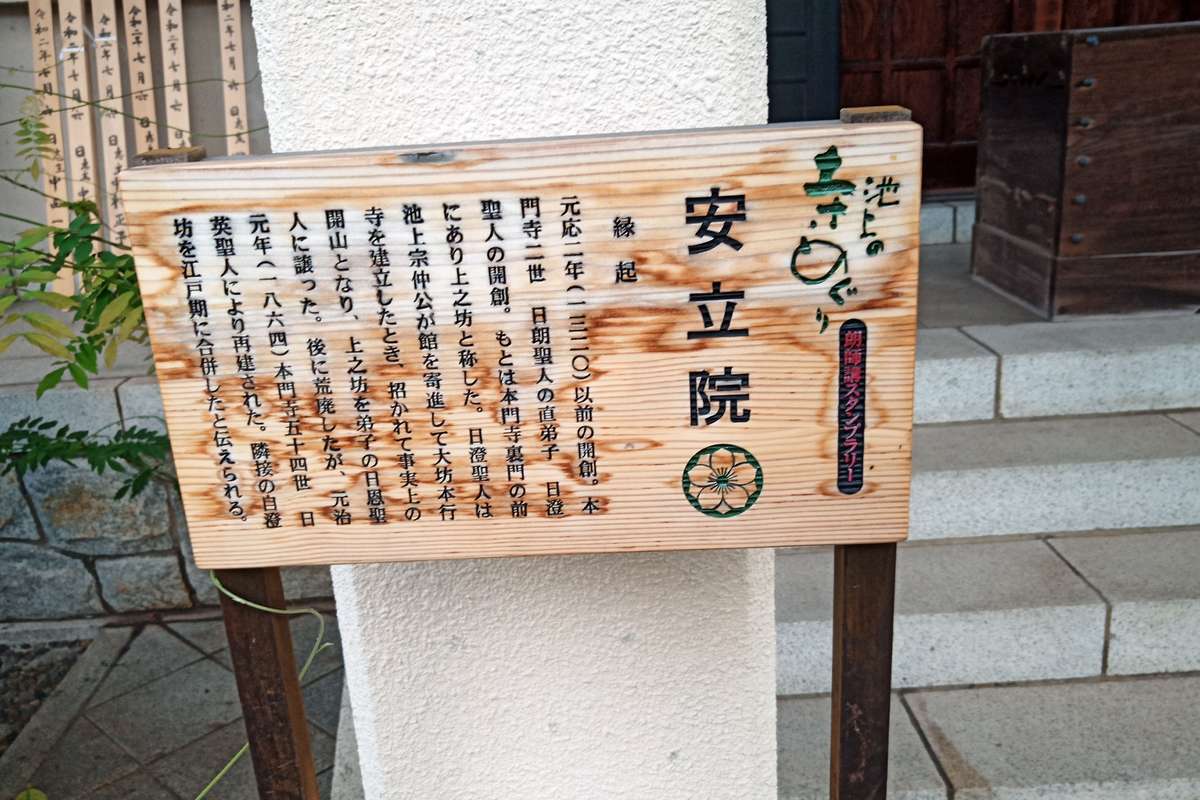 池上の
寺めぐり
朗師講スタンプラリー
安立院
縁起
元応二年(一三二〇)以前の開創。本
門寺二世 日朗聖人の直弟子 日澄
聖人の開創。もとは本門寺裏門の前
にあり上之坊と称した。日澄聖人は
池上宗仲公が館を寄進して大坊本行
寺を建立したとき、招かれて事実上の
開山となり、上之坊を弟子の日恩聖
人に譲った。後に荒廃したが、元治
元年(一八六四)本門寺五十四世 日
英聖人により再建された。隣接の自澄
坊を江戸期に合併したと伝えられる。
令和二年七月六日
令和二年七月六
令和二年七月六
令和二年七月六
令和二年七月六
和二年七月六